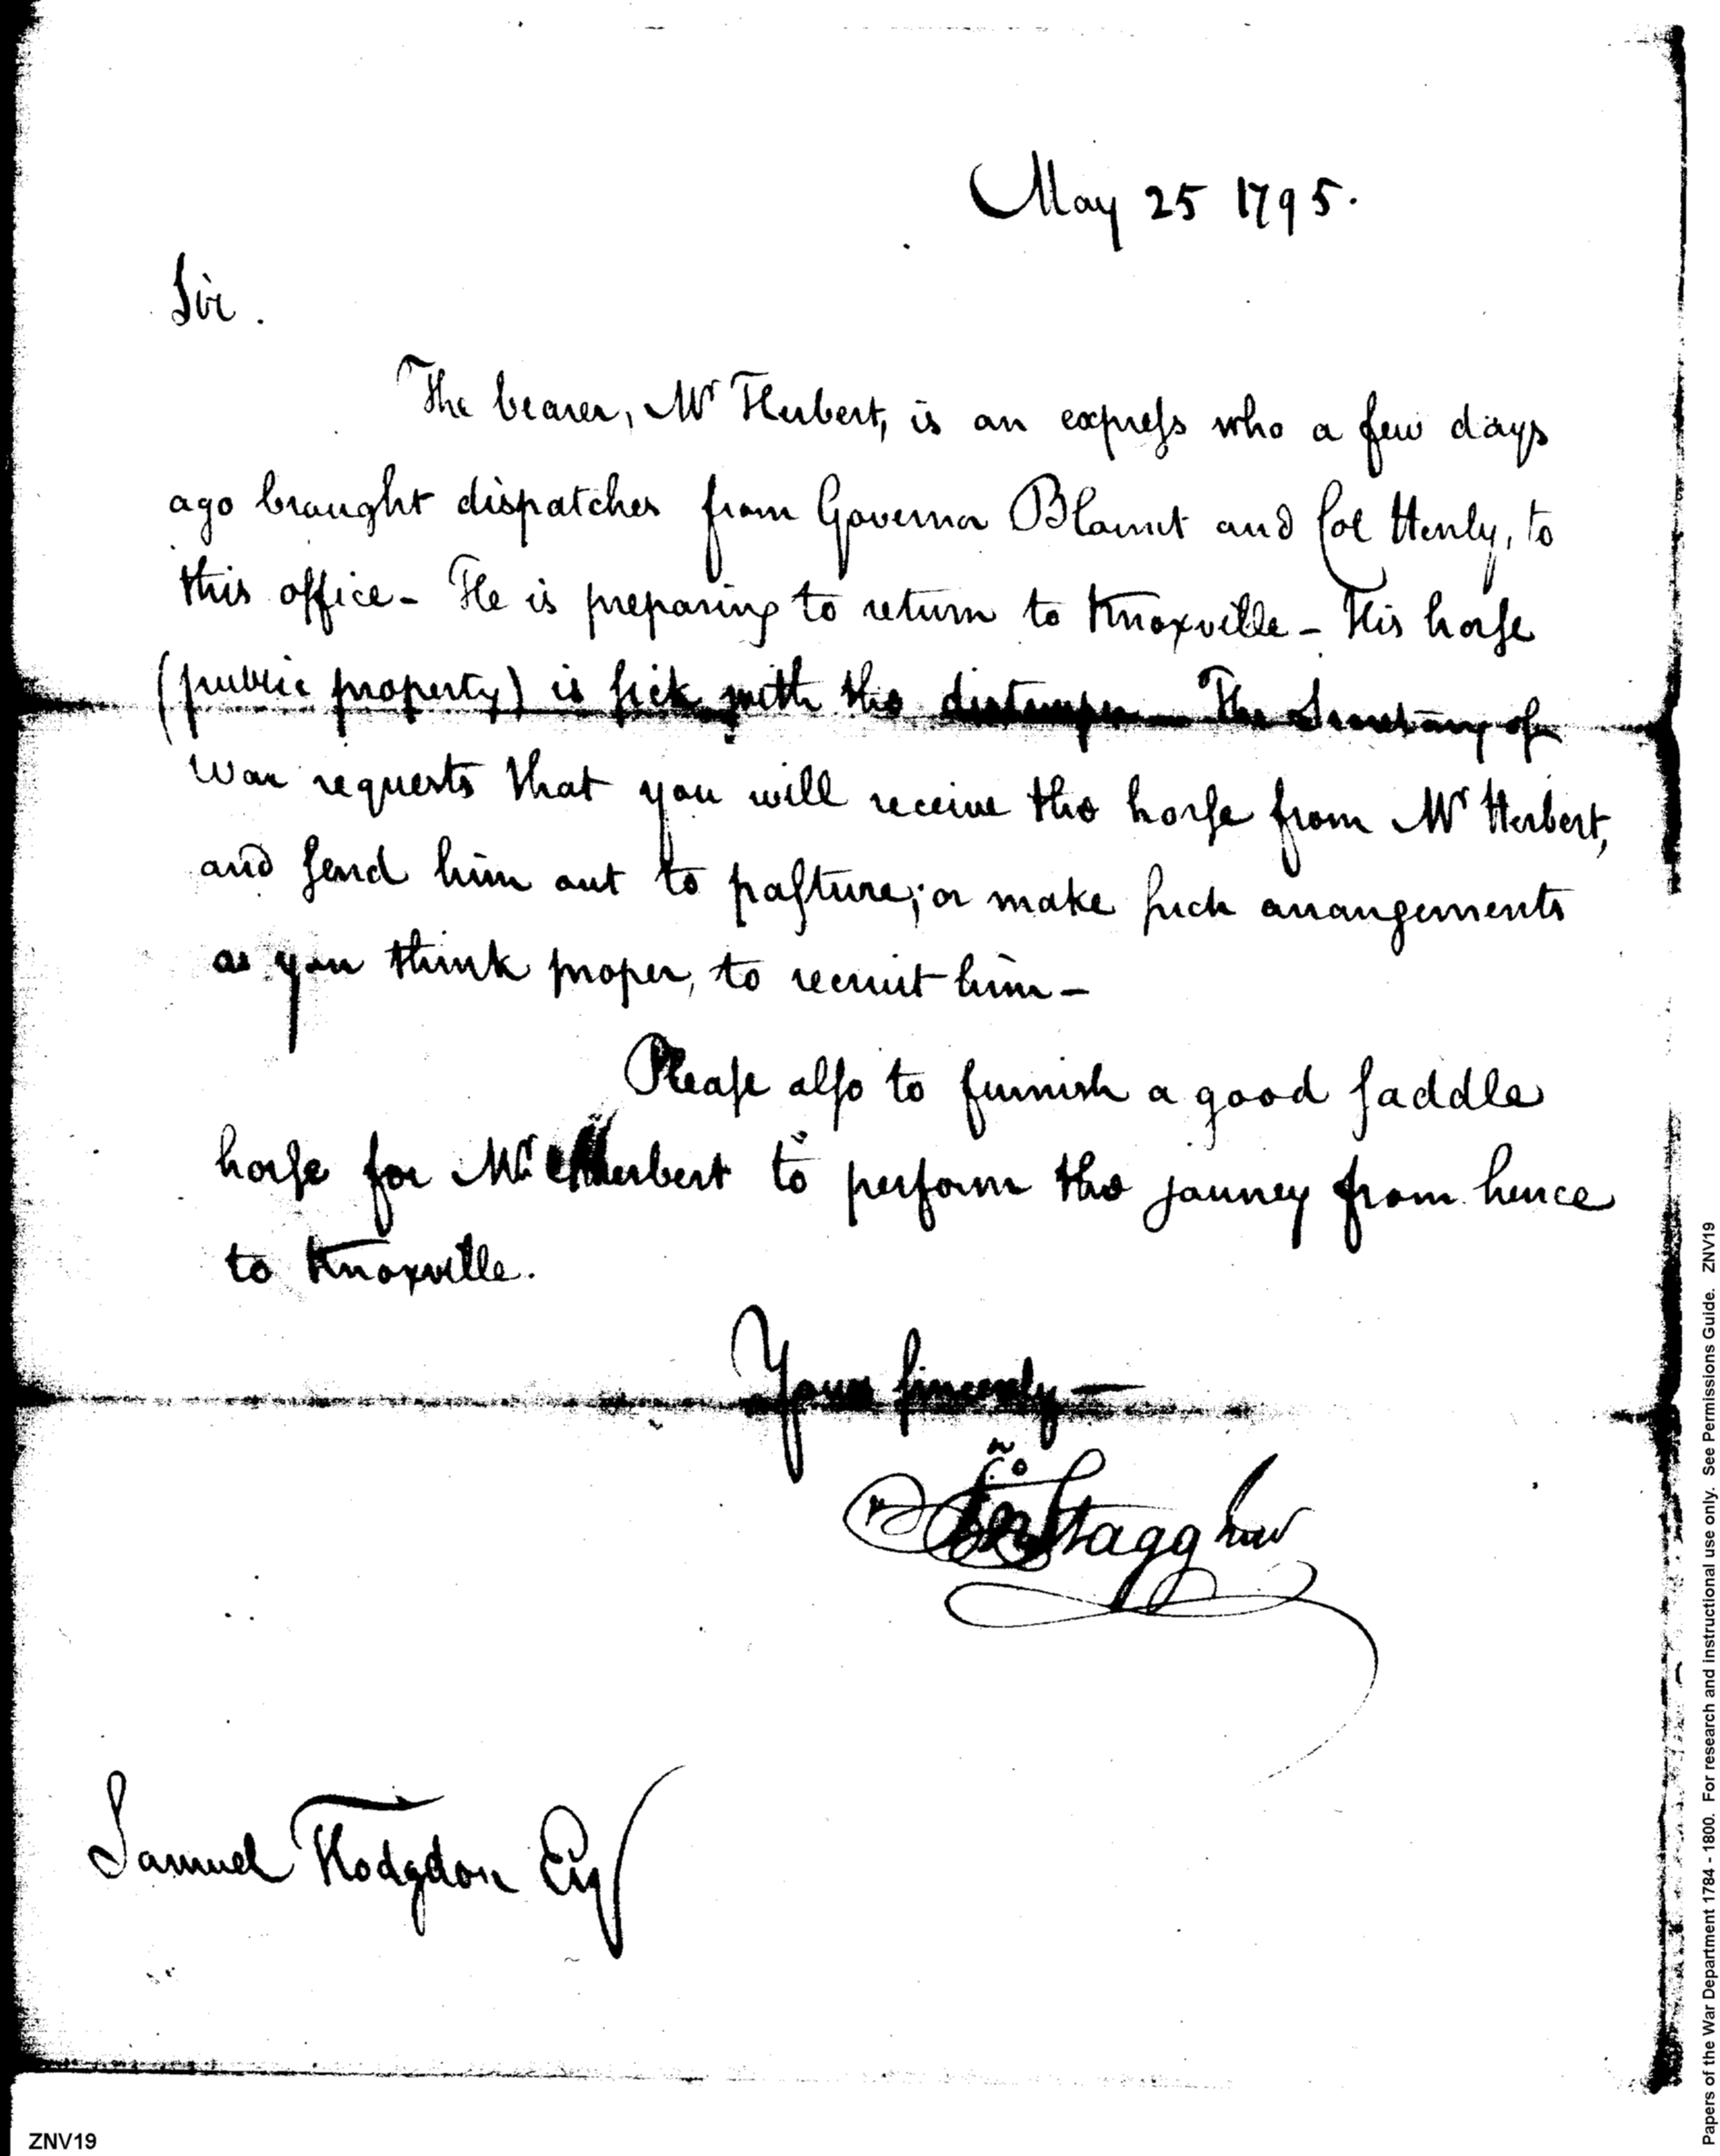 May 25 1795.
Sir.
The bearer, Mr Herbert, is an express who a few days
ago brought dispatches from Governor Blount and Col Henly, to
this office - He is preparing to return to Knoxville - His horse
(public property) is sick with the distemper - The Secretary of
War requests that you will receive the horse from Mr Herbert,
and send him out to pasture; or make such arrangements
as you think proper, to recruit him -
Please also to furnish a good saddle
horse for Mr Herbert to perform the journey from hence
to Knoxville.
Yours sincerely -
Jno Stagg junr
Samuel Hodgdon Esq
ZNV19
Papers of the War Department 1784 - 1800. For research and instructional use only. See Permissions Guide. ZNV19